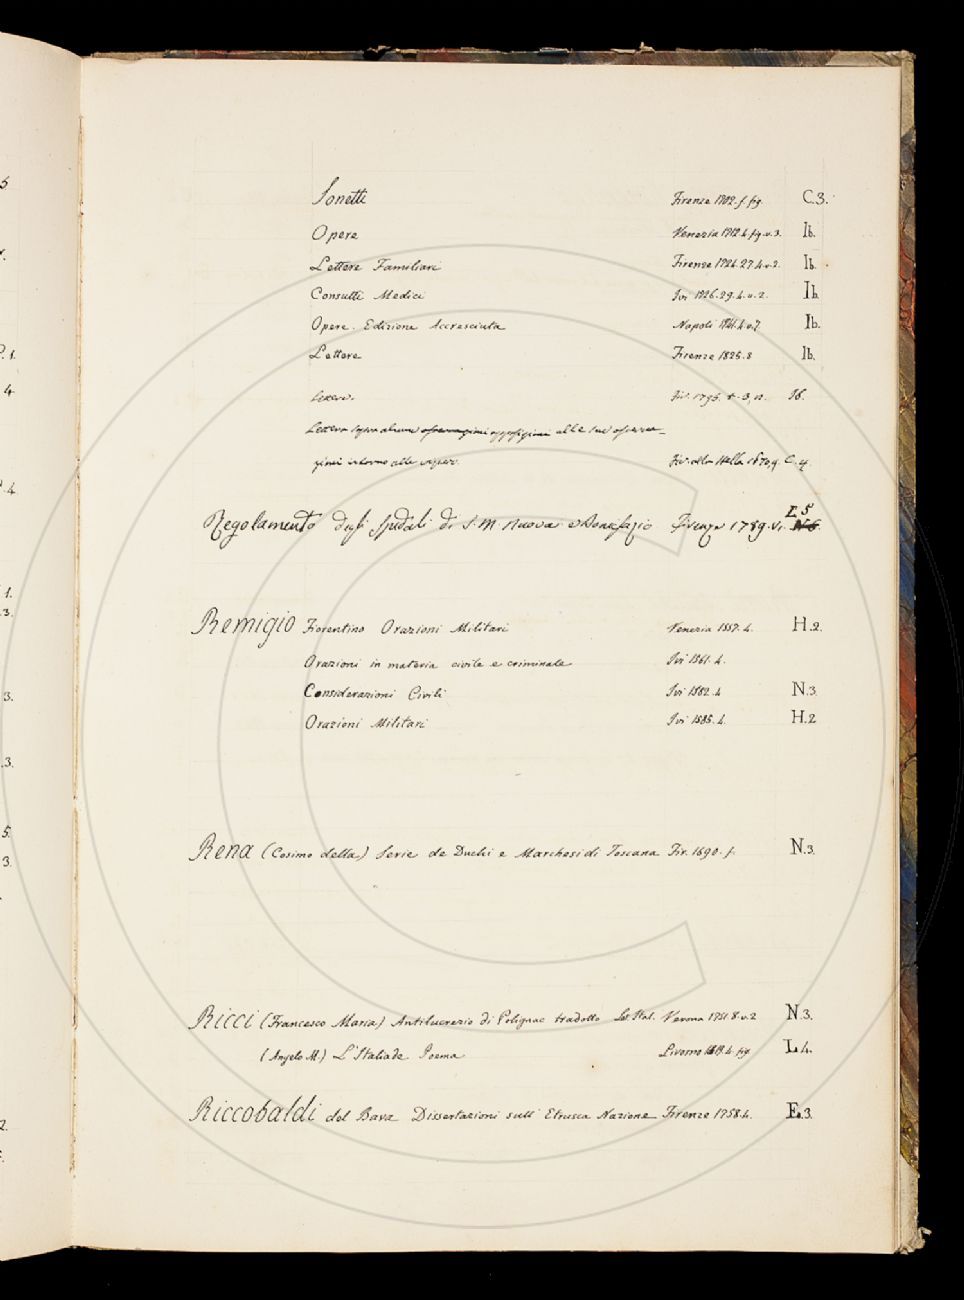 Sonetti Firenze 1702. f. fig. C.3.
Opere Venezia 1712. 4. fig. v. 3. Ib.
Lettere Familiari Firenze 1724.27. 4. v. 2. Ib.
Consulti Medici Ivi 1726.29. 4. v. 2. Ib.
Opere. Edizione Accresciuta Napoli 1741. 4. v. 7. Ib.
Lettere Firenze 1825. 8 Ib.
Lettere. Fir. 1795. Ib.
Lettera sopra alcune opposizioni alle sue osserva-
zioni intorno alle vipere. Fir. alla Stella C. 4.
L 5
Regolamento degli Spedali di S. M. Nuova e Bonifazio Firenze 1789. N6
Remigio Fiorentino Orazioni Militari Venezia 1557. 4. H.2.
Orazioni in materia civile e criminale Ivi 1561. 4.
Considerazioni Civili Ivi 1582. 4 N.3
Orazioni Militari Ivi 1585. 4. H.2
Rena (Cosimo della) Serie de Duchi e Marchesi di Toscana Fir. 1690. f. N.3.
Ricci (Francesco Maria) Antilucrezio di Polignac tradotto Lat. Ital. Verona 1751. 8. v. 2 N.3.
(Angelo M.) L'Italiade Poema Livorno 1819. 4. fig. L.4.
Riccobaldi del Bava Dissertazioni sull' Etrusca Nazione Firenze 1758. 4. E.3.
5
P. 1.
4
4.
1.
3.
3.
.3.
5.
3.
2.